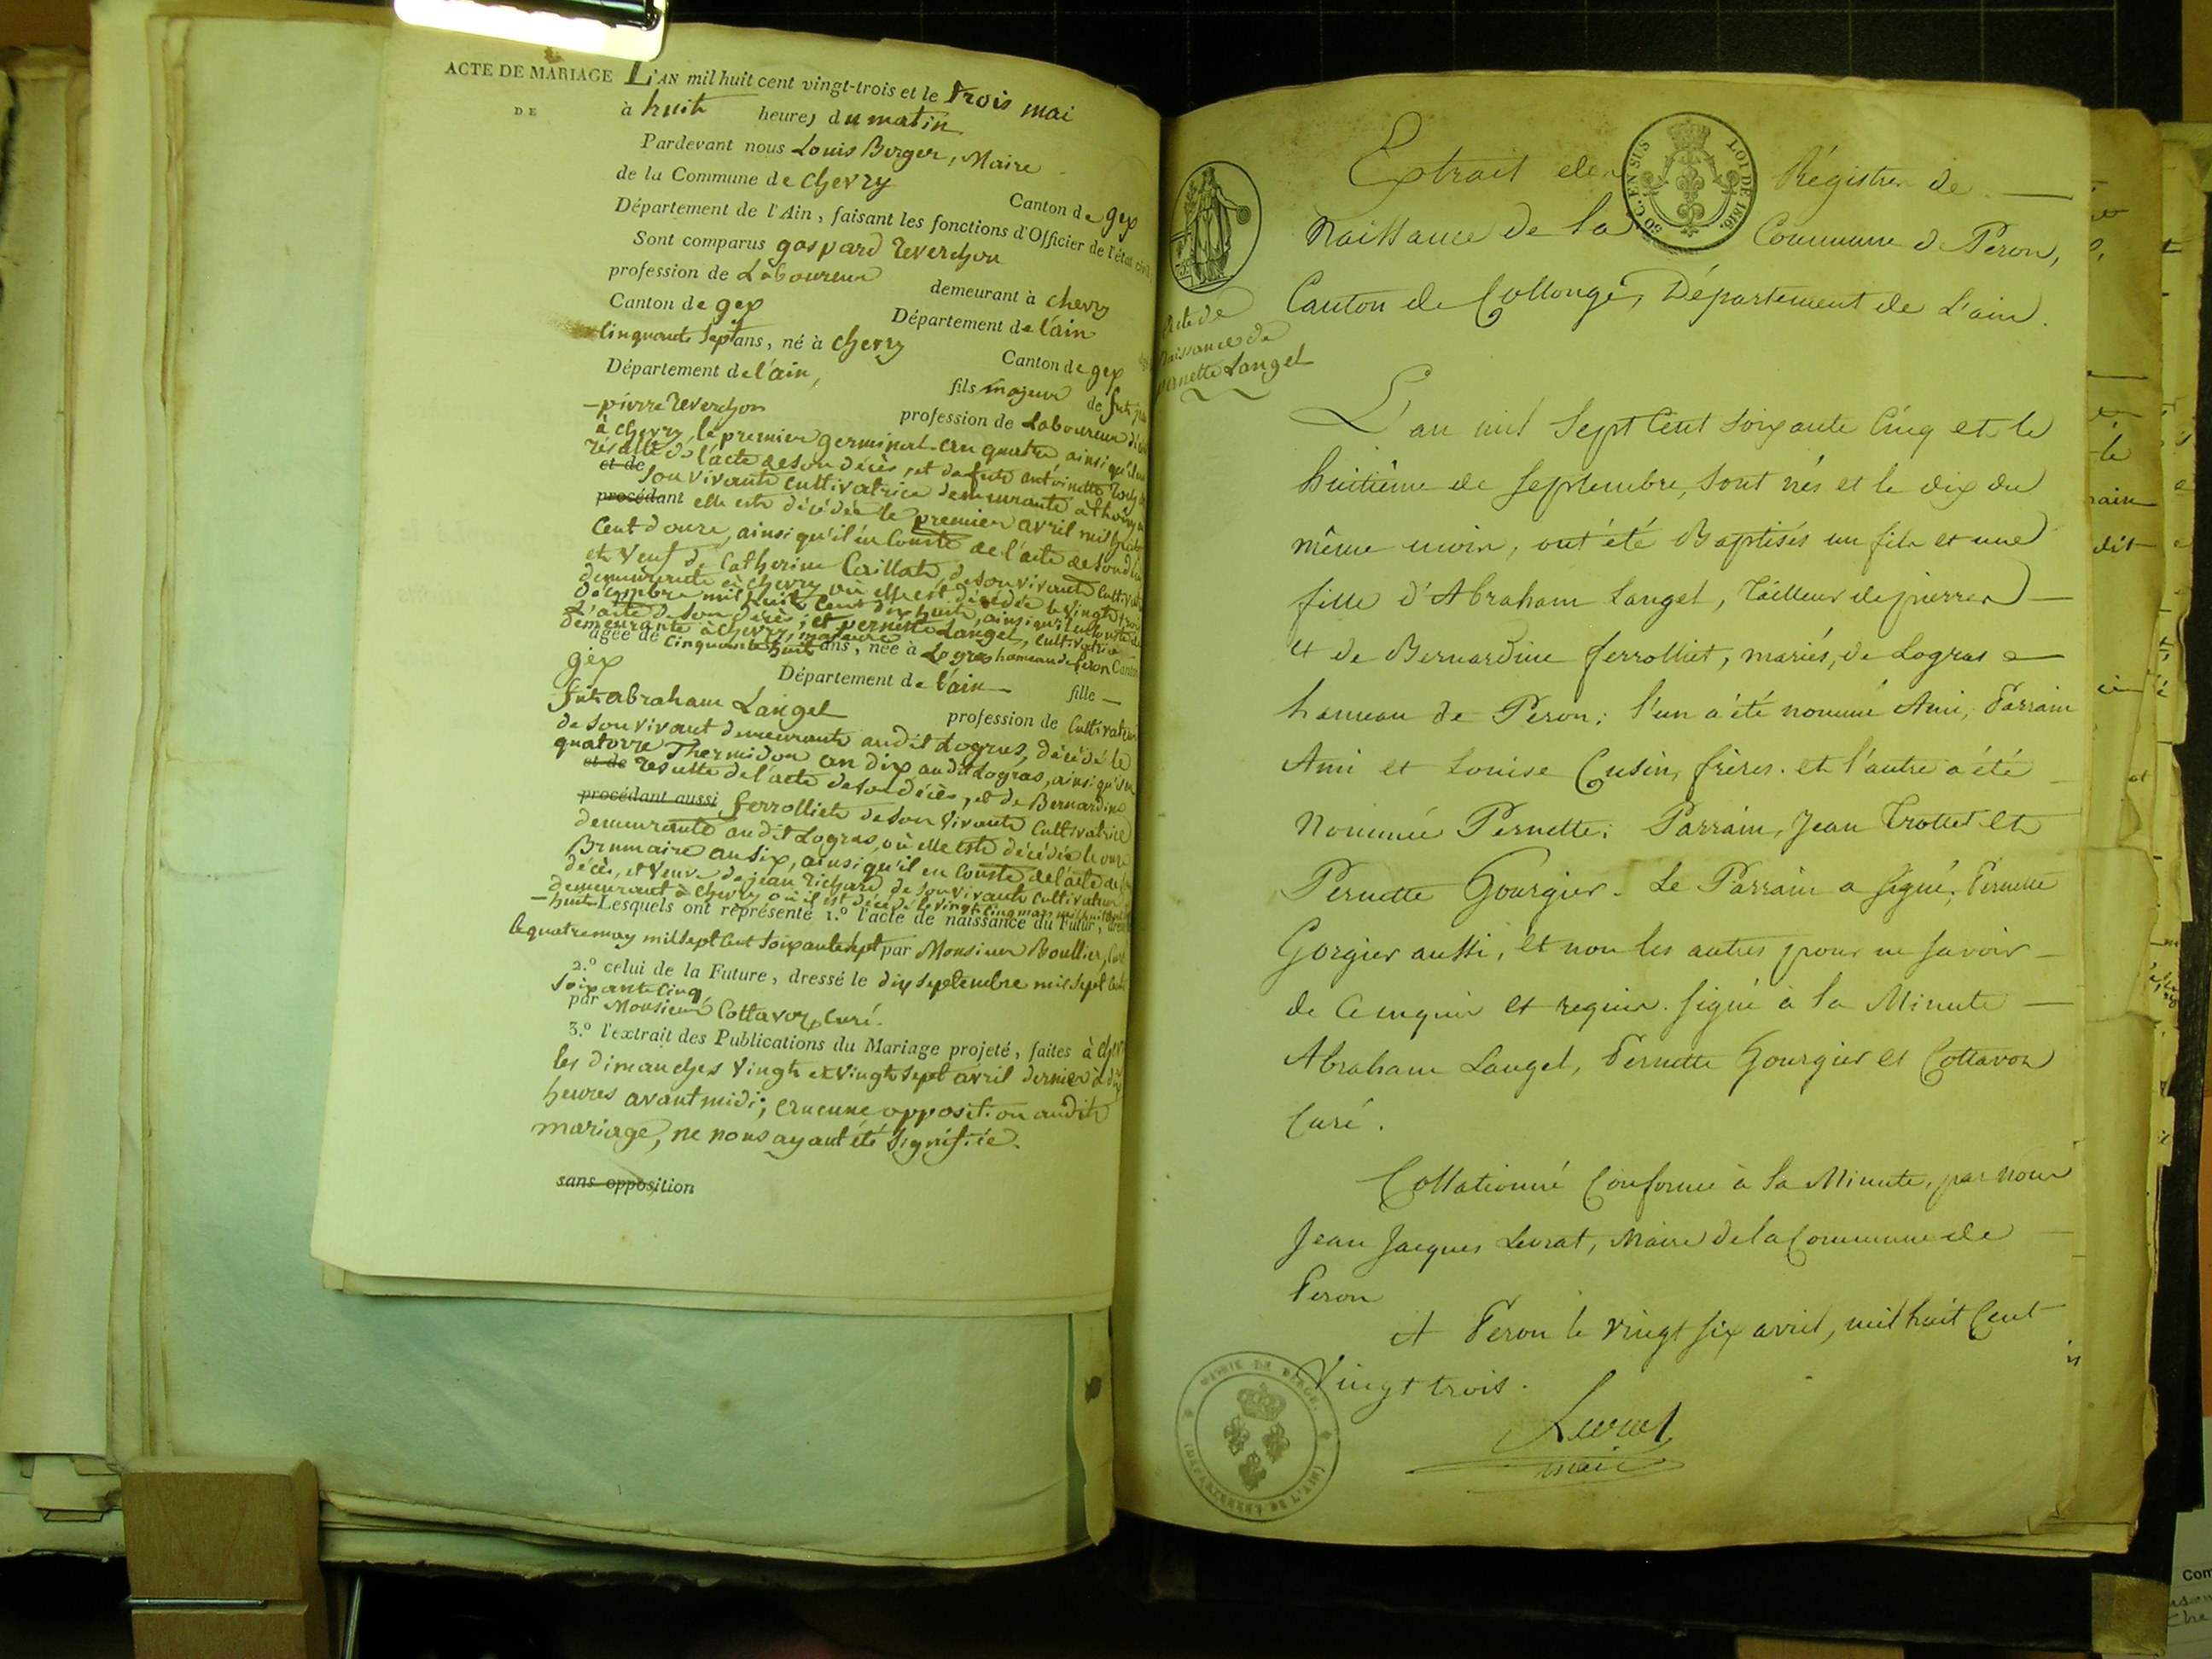 ACTE DE MARIAGE
DE
L'AN mil huit cent vingt-trois et le trois mai
à huit heures du matin
Pardevant nous Louis Berger, Maire
de la Commune de Chevry Canton de gex
Département de l'Ain, faisant les fonctions d'Officier de l'état civil
Sont comparus gaspard Reverchon
profession de Laboureur demeurant à chevry
Canton de gex Département de l'ain
Cinquante Sept ans, né à chevry Canton de gex
Département de l'ain, fils majeur de fut
pierre Reverchon profession de Laboureur
à chevry, le premier germinal an quatre ainsi qu'il
résulte de l'acte de son décès, et de fute antoinette
et de son vivante cultivatrice demeurante a thoiry
procédant elle este décédée le premier avril mil huit
Cent douze, ainsi qu'il en Conste de l'acte de son
et Veuf de Catherine Caillat, de son vivante
demeurante à chevry où elle est décédée le vingt trois
décembre mil huit Cent dix huit, ainsi qu'il en Conste de
L'acte de son décès; et pernette Langel, Cultivatrice
demeurante à chevry, majeure
agée de Cinquante huit ans, née à Logras hameau de Peron Canton
gex Département de l'ain fille
fut abraham Langel profession de Cultivateur
de son vivant demeurante audit Logras, décédé le
quatorze Thermidor an dix audit Logras, ainsi qu'il en
et de résulte de l'acte de son décès, et de Bernardine
procédant aussi ferrolliet de son Vivante Cultivatrice
demeurante audit Logras, où elle este décédée le onze
Brumaire an six, ainsi qu'il en Conste de l'acte de
décès, et Veuve de jean Richard de son vivante Cultivateur
demeurant à chevry où il est décédé le vingt cinq mars mil huit
huit Lesquels ont représenté 1.º l'acte de naissance du Futur,
le quatre may mil sept Cent soixante sept par Monsieur Boullier, Curé
2.º celui de la Future, dressé le dix septembre mil Sept Cent
soixante Cinq
par Monsieur Cottavoz, Curé.
3.º l'extrait des Publications du Mariage projeté, faites à
les dimanches Vingt et vingt sept avril dernier à dix
heures avant midi; aucune opposition audit
mariage, ne nous ayant été signifiée.
sans opposition
50 C. EN SUS LOI DE 1816.
Extrait des Régistres de
Naissance de la Commune de Peron,
Canton de Collonges, Département de L'ain.
Acte de
naissance de
pernette Langel
L'an mil Sept Cent Soixante Cinq et le
huitième de Septembre, sont nés et le dix du
même mois, ont été Baptisés un fils et une
fille d'Abraham Langel, Tailleur de pierres
et de Bernardine ferrolliet, mariés, de Logras
hameau de Péron; l'un a été nommé Ami, Parrain
Ami et Louise Cusin, frères. et l'autre a été
Nommée Pernette; Parrain, Jean Trottet et
Pernette Gourgier. Le Parrain a signé, Pernette
Gorgier aussi, et non les autres pour ne savoir
de ce enquis et requis. Signé à la Minute
Abraham Langel, Pernette Gourgier et Cottavoz
Curé.
Collationné Conforme à la Minute, par nous
Jean Jacques Levrat, Maire de la Commune de
Peron
A Peron le vingt six avril, mil huit Cent
Vingt trois.
Levrat
maire
MAIRIE DE PERON.
DÉPARTEMENT DE L'AIN